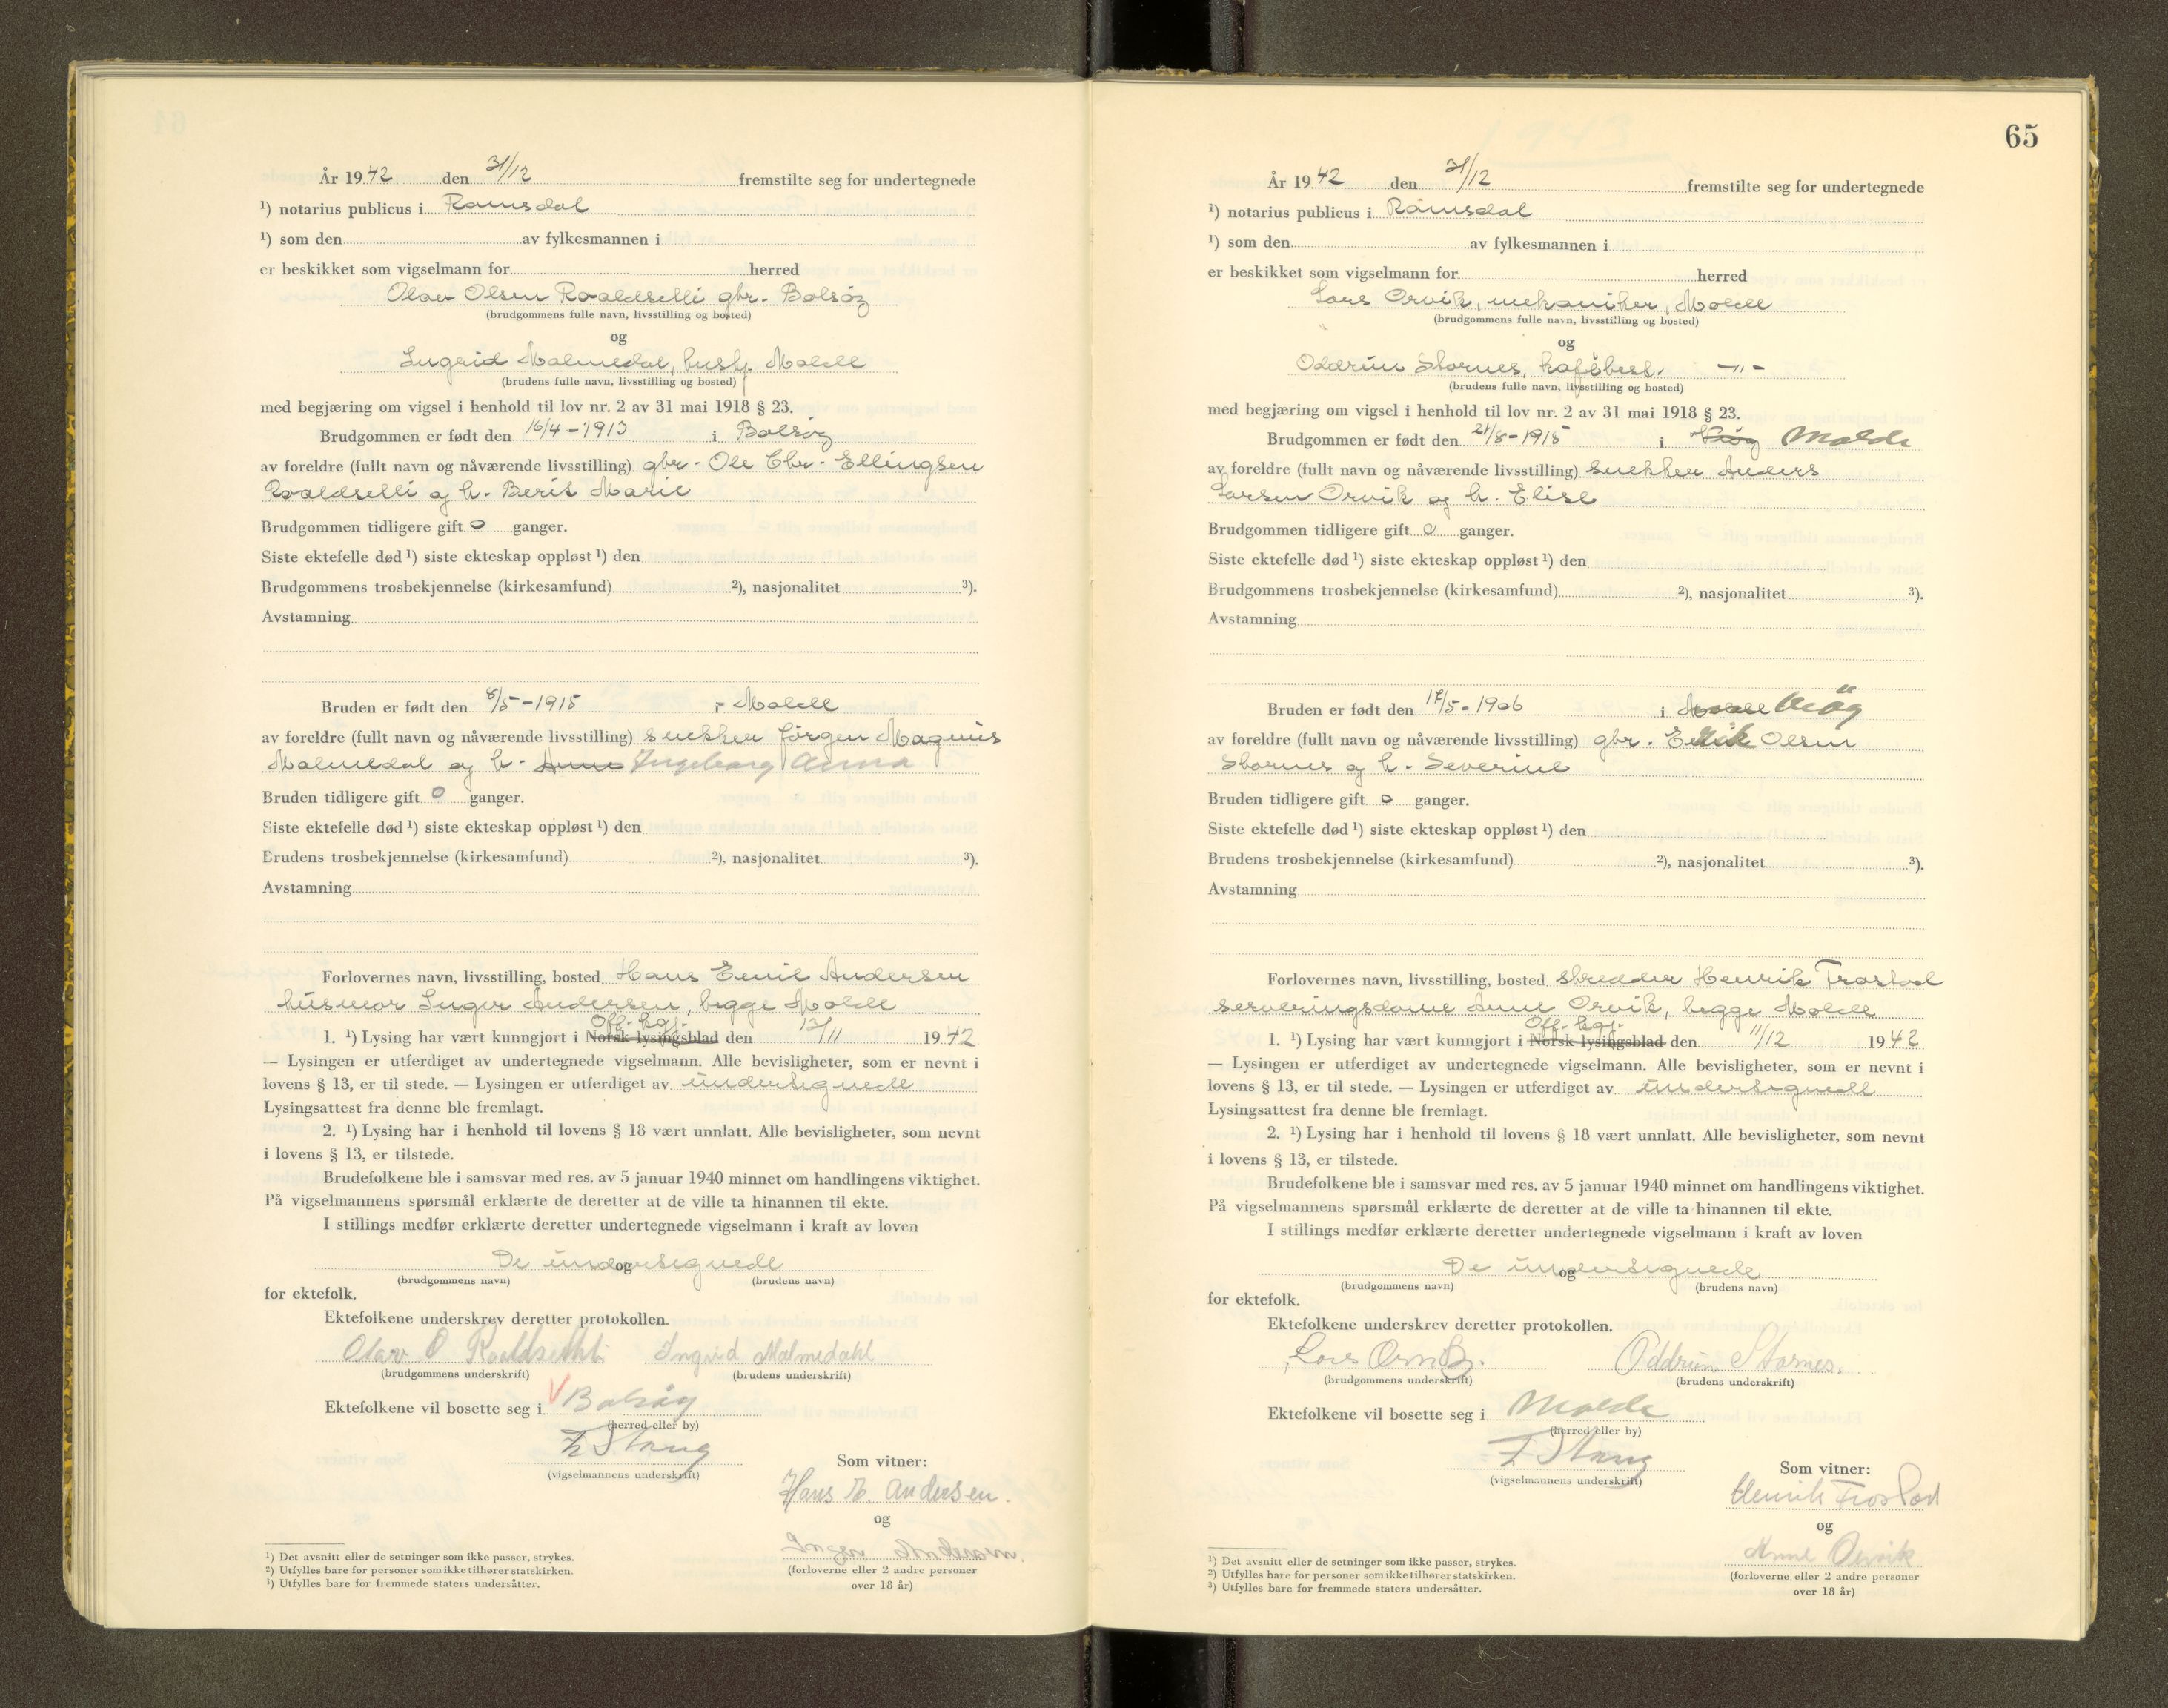 År 1942 den 31/12 fremstilte seg for undertegnede
¹) notarius publicus i Romsdal
¹) som den av fylkesmannen i
er beskikket som vigselmann for herred
Olav Olsen Roaldsetli gbr. Bolsøy
(brudgommens fulle navn, livsstilling og bosted)
og
Ingrid Malmedal, hush. Molde
(brudens fulle navn, livsstilling og bosted)
med begjæring om vigsel i henhold til lov nr. 2 av 31 mai 1918 § 23.
Brudgommen er født den 16/4-1913 i Bolsøy
av foreldre (fullt navn og nåværende livsstilling) gbr. Ole Chr. Ellingsen
Roaldsetli og h. Berit Marie
Brudgommen tidligere gift 0 ganger.
Siste ektefelle død ¹) siste ekteskap oppløst ¹) den
Brudgommens trosbekjennelse (kirkesamfund) ²), nasjonalitet ³).
Avstamning
Bruden er født den 8/5-1915 i Molde
av foreldre (fullt navn og nåværende livsstilling) snekker Jørgen Magnus
Malmedal og h. Anna Ingeborg Anna
Bruden tidligere gift 0 ganger.
Siste ektefelle død ¹) siste ekteskap oppløst ¹) den
Brudens trosbekjennelse (kirkesamfund) ²), nasjonalitet ³).
Avstamning
Forlovernes navn, livsstilling, bosted Hans Emil Andersen
husmor Inger Andersen, begge Molde
Off. kgj.
1. ¹) Lysing har vært kunngjort i Norsk lysingsblad den 13/11 1942
— Lysingen er utferdiget av undertegnede vigselmann. Alle bevisligheter, som er nevnt i
lovens § 13, er til stede. — Lysingen er utferdiget av undertegnede
Lysingsattest fra denne ble fremlagt.
2. ¹) Lysing har i henhold til lovens § 18 vært unnlatt. Alle bevisligheter, som nevnt
i lovens § 13, er tilstede.
Brudefolkene ble i samsvar med res. av 5 januar 1940 minnet om handlingens viktighet.
På vigselmannens spørsmål erklærte de deretter at de ville ta hinannen til ekte.
I stillings medfør erklærte deretter undertegnede vigselmann i kraft av loven
De undertegnede
og
(brudgommens navn) (brudens navn)
for ektefolk.
Ektefolkene underskrev deretter protokollen.
Olav O Roaldsetli Ingrid Malmedahl
(brudgommens underskrift) (brudens underskrift)
Ektefolkene vil bosette seg i Bolsøy
(herred eller by)
F Stang
(vigselmannens underskrift)
Som vitner:
Hans E. Andersen.
og
Inger Andersen.
(forloverne eller 2 andre personer
over 18 år)
¹) Det avsnitt eller de setninger som ikke passer, strykes.
²) Utfylles bare for personer som ikke tilhører statskirken.
³) Utfylles bare for fremmede staters undersåtter.
65
År 1942 den 31/12 fremstilte seg for undertegnede
¹) notarius publicus i Romsdal
¹) som den av fylkesmannen i
er beskikket som vigselmann for herred
Lars Orvik, mekaniker, Molde
(brudgommens fulle navn, livsstilling og bosted)
og
Oddrun Stornes, kafébest. -"-
(brudens fulle navn, livsstilling og bosted)
med begjæring om vigsel i henhold til lov nr. 2 av 31 mai 1918 § 23.
Brudgommen er født den 21/8-1915 i Molde
av foreldre (fullt navn og nåværende livsstilling) snekker Anders
Larsen Orvik og h. Elise
Brudgommen tidligere gift 0 ganger.
Siste ektefelle død ¹) siste ekteskap oppløst ¹) den
Brudgommens trosbekjennelse (kirkesamfund) ²), nasjonalitet ³).
Avstamning
Bruden er født den 17/5-1906 i Molde Veøy
av foreldre (fullt navn og nåværende livsstilling) gbr. Erik Olsen
Stornes og h. Severine
Bruden tidligere gift 0 ganger.
Siste ektefelle død ¹) siste ekteskap oppløst ¹) den
Brudens trosbekjennelse (kirkesamfund) ²), nasjonalitet ³).
Avstamning
Forlovernes navn, livsstilling, bosted skredder Henrik Frostad
serveringsdame Anne Orvik, begge Molde
Off. kgj.
1. ¹) Lysing har vært kunngjort i Norsk lysingsblad den 11/12 1942
— Lysingen er utferdiget av undertegnede vigselmann. Alle bevisligheter, som er nevnt i
lovens § 13, er til stede. — Lysingen er utferdiget av undertegnede
Lysingsattest fra denne ble fremlagt.
2. ¹) Lysing har i henhold til lovens § 18 vært unnlatt. Alle bevisligheter, som nevnt
i lovens § 13, er tilstede.
Brudefolkene ble i samsvar med res. av 5 januar 1940 minnet om handlingens viktighet.
På vigselmannens spørsmål erklærte de deretter at de ville ta hinannen til ekte.
I stillings medfør erklærte deretter undertegnede vigselmann i kraft av loven
De undertegnede
og
(brudgommens navn) (brudens navn)
for ektefolk.
Ektefolkene underskrev deretter protokollen.
Lars Orvik. Oddrun Stornes.
(brudgommens underskrift) (brudens underskrift)
Ektefolkene vil bosette seg i Molde
(herred eller by)
F Stang
(vigselmannens underskrift)
Som vitner:
Henrik Frostad
og
Anne Orvik
(forloverne eller 2 andre personer
over 18 år)
¹) Det avsnitt eller de setninger som ikke passer, strykes.
²) Utfylles bare for personer som ikke tilhører statskirken.
³) Utfylles bare for fremmede staters undersåtter.